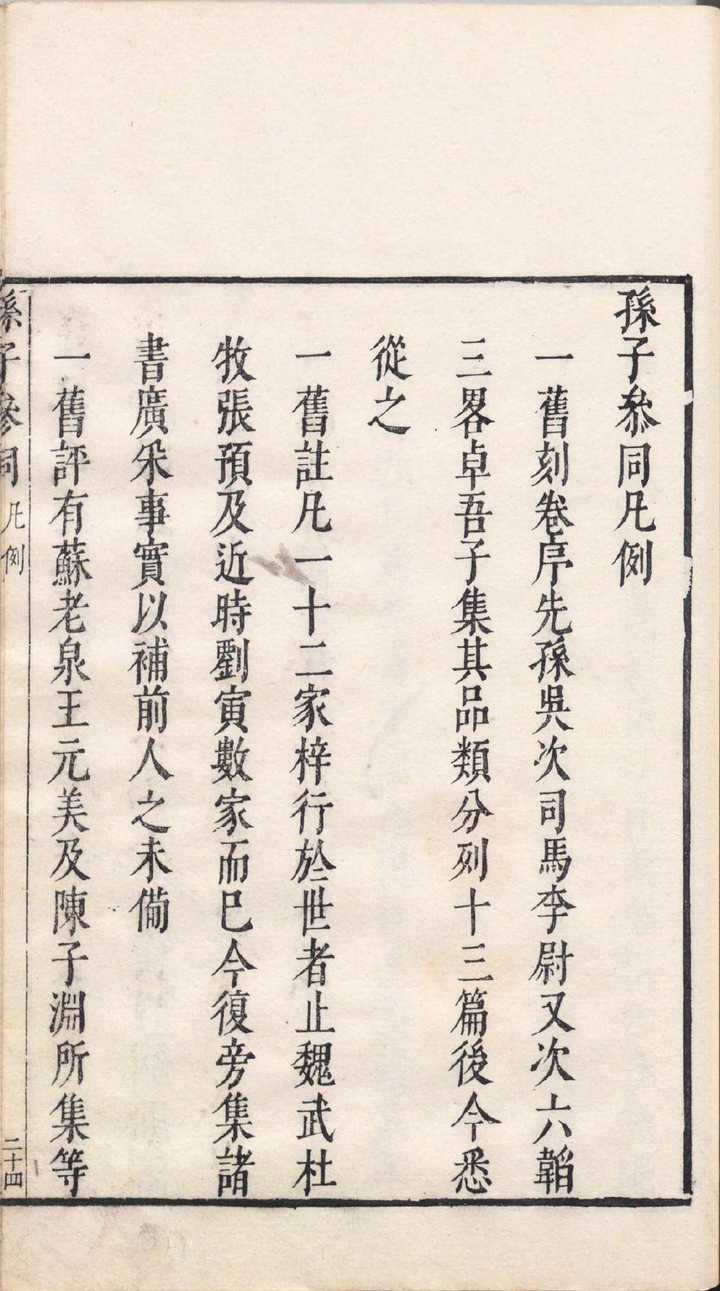 孫子叅同凡例
一舊刻卷序先孫吳次司馬李尉又次六韜
三畧卓吾子集其品類分列十三篇後今悉
從之
一舊註凡一十二家梓行於世者止魏武杜
牧張預及近時劉寅數家而已今復旁集諸
書廣采事實以補前人之未備
一舊評有蘇老泉王元美及陳子淵所集等
孫子參同 凡例 二十四